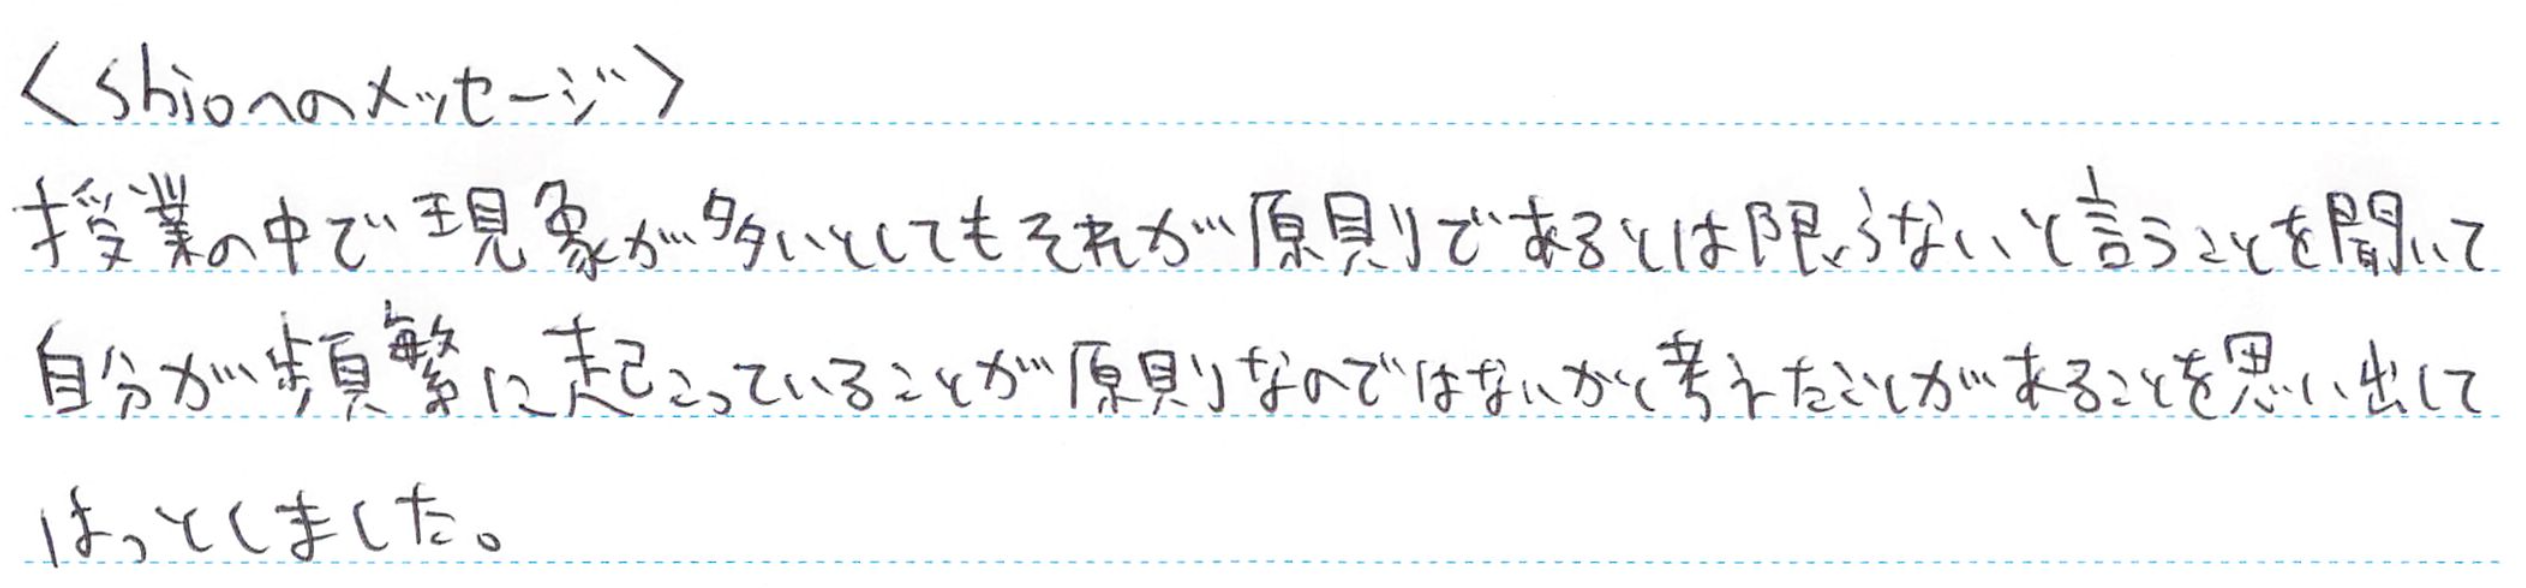 <shioへのメッセージ>
授業の中で現象が多いとしてもそれが原則であるとは限らないと言うことを聞いて
自分が頻繁に起こっていることが原則なのではないかと考えたことがあることを思い出して
はっとしました。